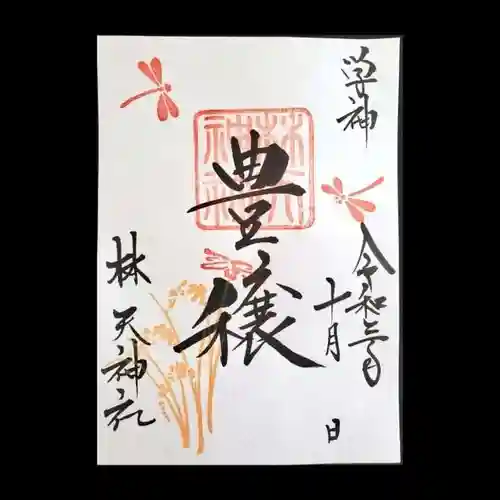 学神
令和三年
十月
日
豊穣
林天神社